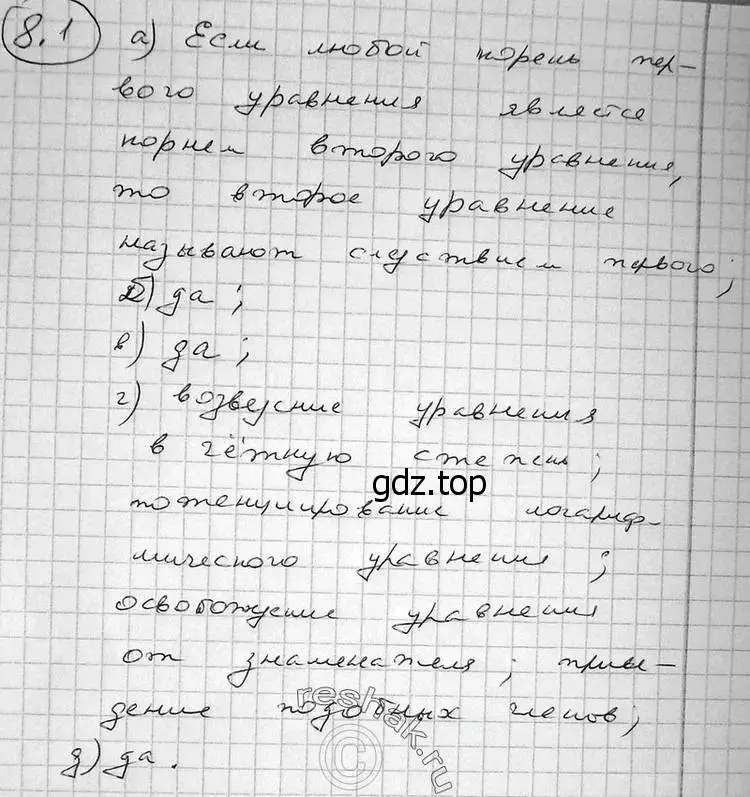 8.1 а) Если любой корень пер-
вого уравнения является
корнем второго уравнения,
то второе уравнение
называют следствием первого;
б) да;
в) да;
г) возведение уравнения
в чётную степень;
gdz.top
потенциирование логариф-
мического уравнения;
освобождение уравнения
от знаменателя; приве-
дение подобных членов;
reshak.ru
д) да.